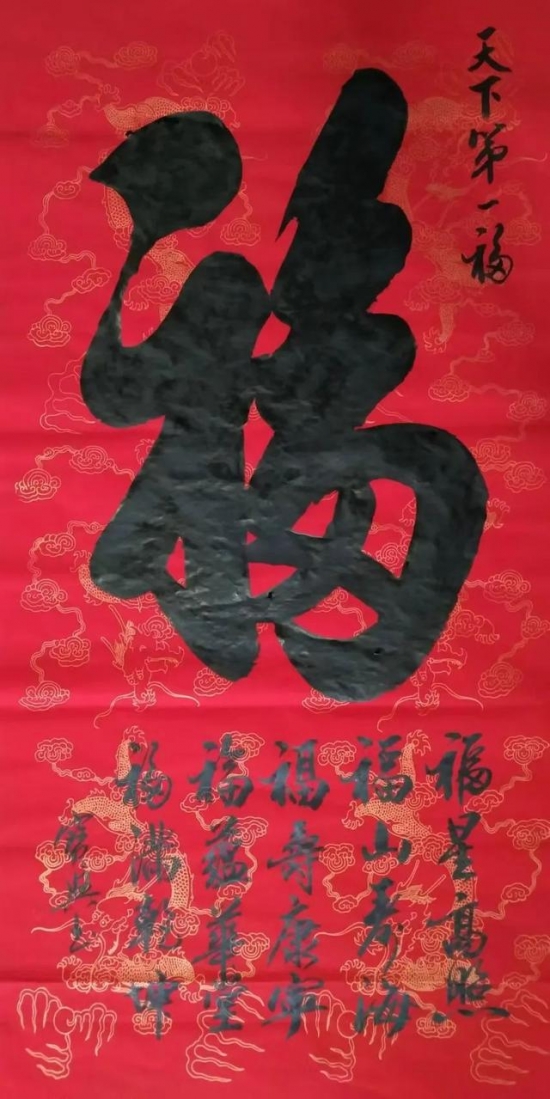 天下第一福
福
福星高照
福山寿海
福寿康宁
福蕴华堂
福满乾坤